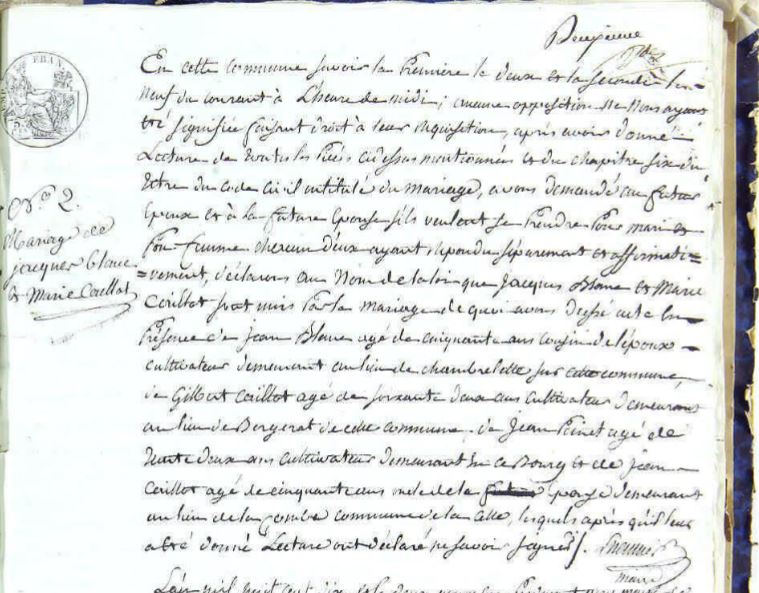 Deuxième
En cette commune savoir la Première le deux et la seconde le
neuf du courant à L'heure de midi; aucune opposition ne Nous ayant
été signifiée faisant droit à leur réquisition, après avoir donné
Lecture de toutes les Pièces cidessus mentionnées et du chapitre six du
titre du code civil intitulé du Mariage, avons demandé au futur
Epoux et à la future Epouse s'ils veulent se Prendre Pour mari et
Pour femme chacun d'eux ayant répondu séparement et affirmati=
=vement, déclarons au Nom de la loi que Jacques Blanc et Marie
Caillot sont unis Par le mariage de quoi avons dressé acte En
Présence de Jean Blanc agé de cinquante ans cousin de l'époux
cultivateur demeurant au lieu de chambrelotte sur cette commune,
de Gilbert Caillot agé de soixante deux ans cultivateur demeurant
au lieu de Bergerat de cette commune. de Jean Pinet agé de
trente deux ans cultivateur demeurant En ce Bourg et de Jean
Caillot agé de cinquante ans oncle de la demeurant
au lieu de la Combe commune de la Celle, lesquels après qu'il leur
a été donné Lecture ont déclaré ne savoir signer /.
maire
L'an mil huit cent dix
N.º 2.
Mariage de
jacques blanc
& Marie Caillot